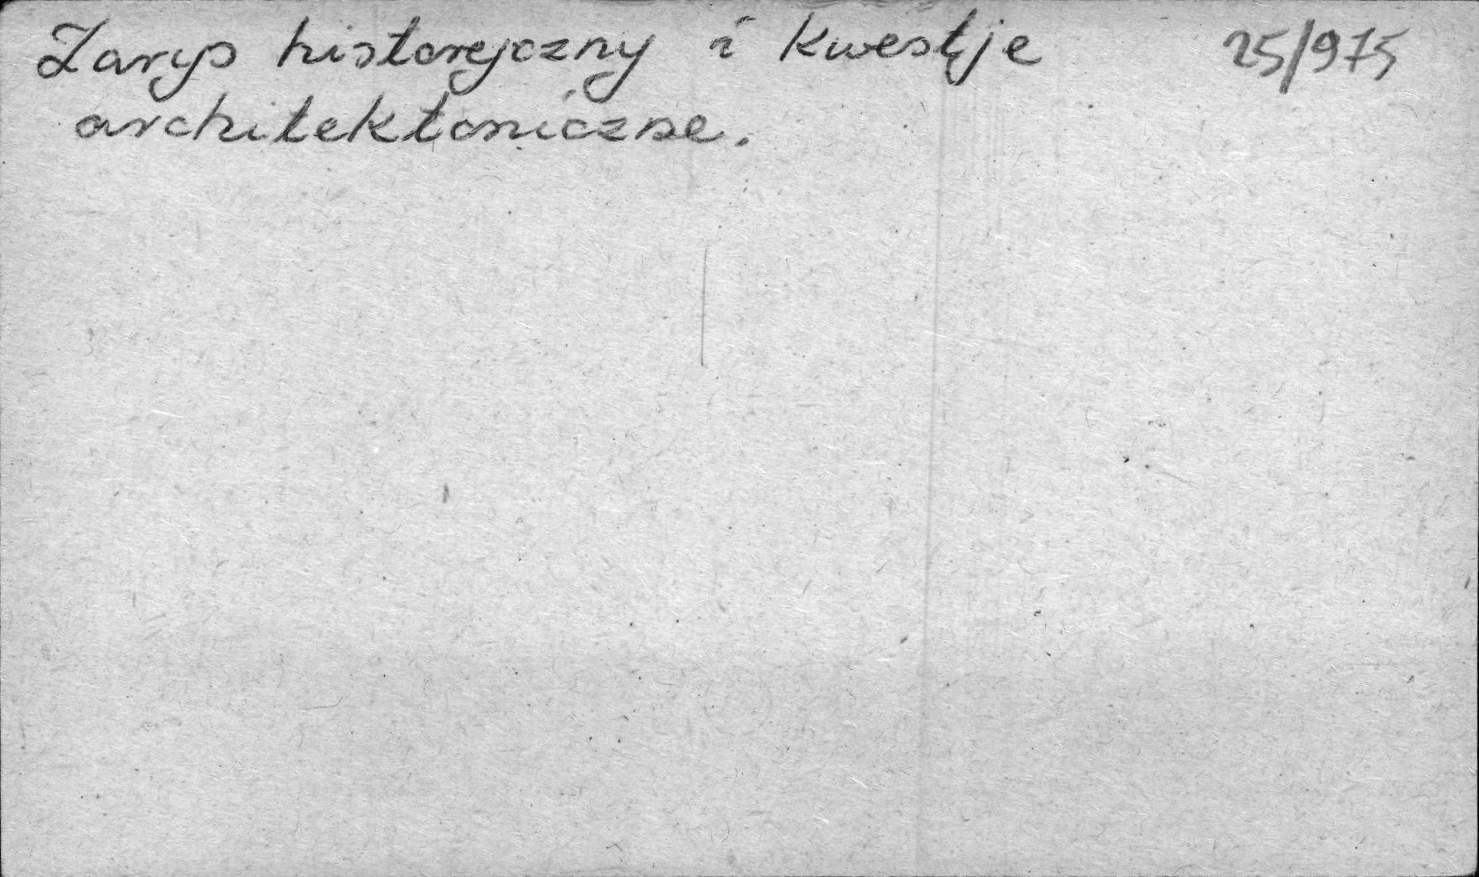 Zarys historyczny i kwestje 25/975
architektoniczne.